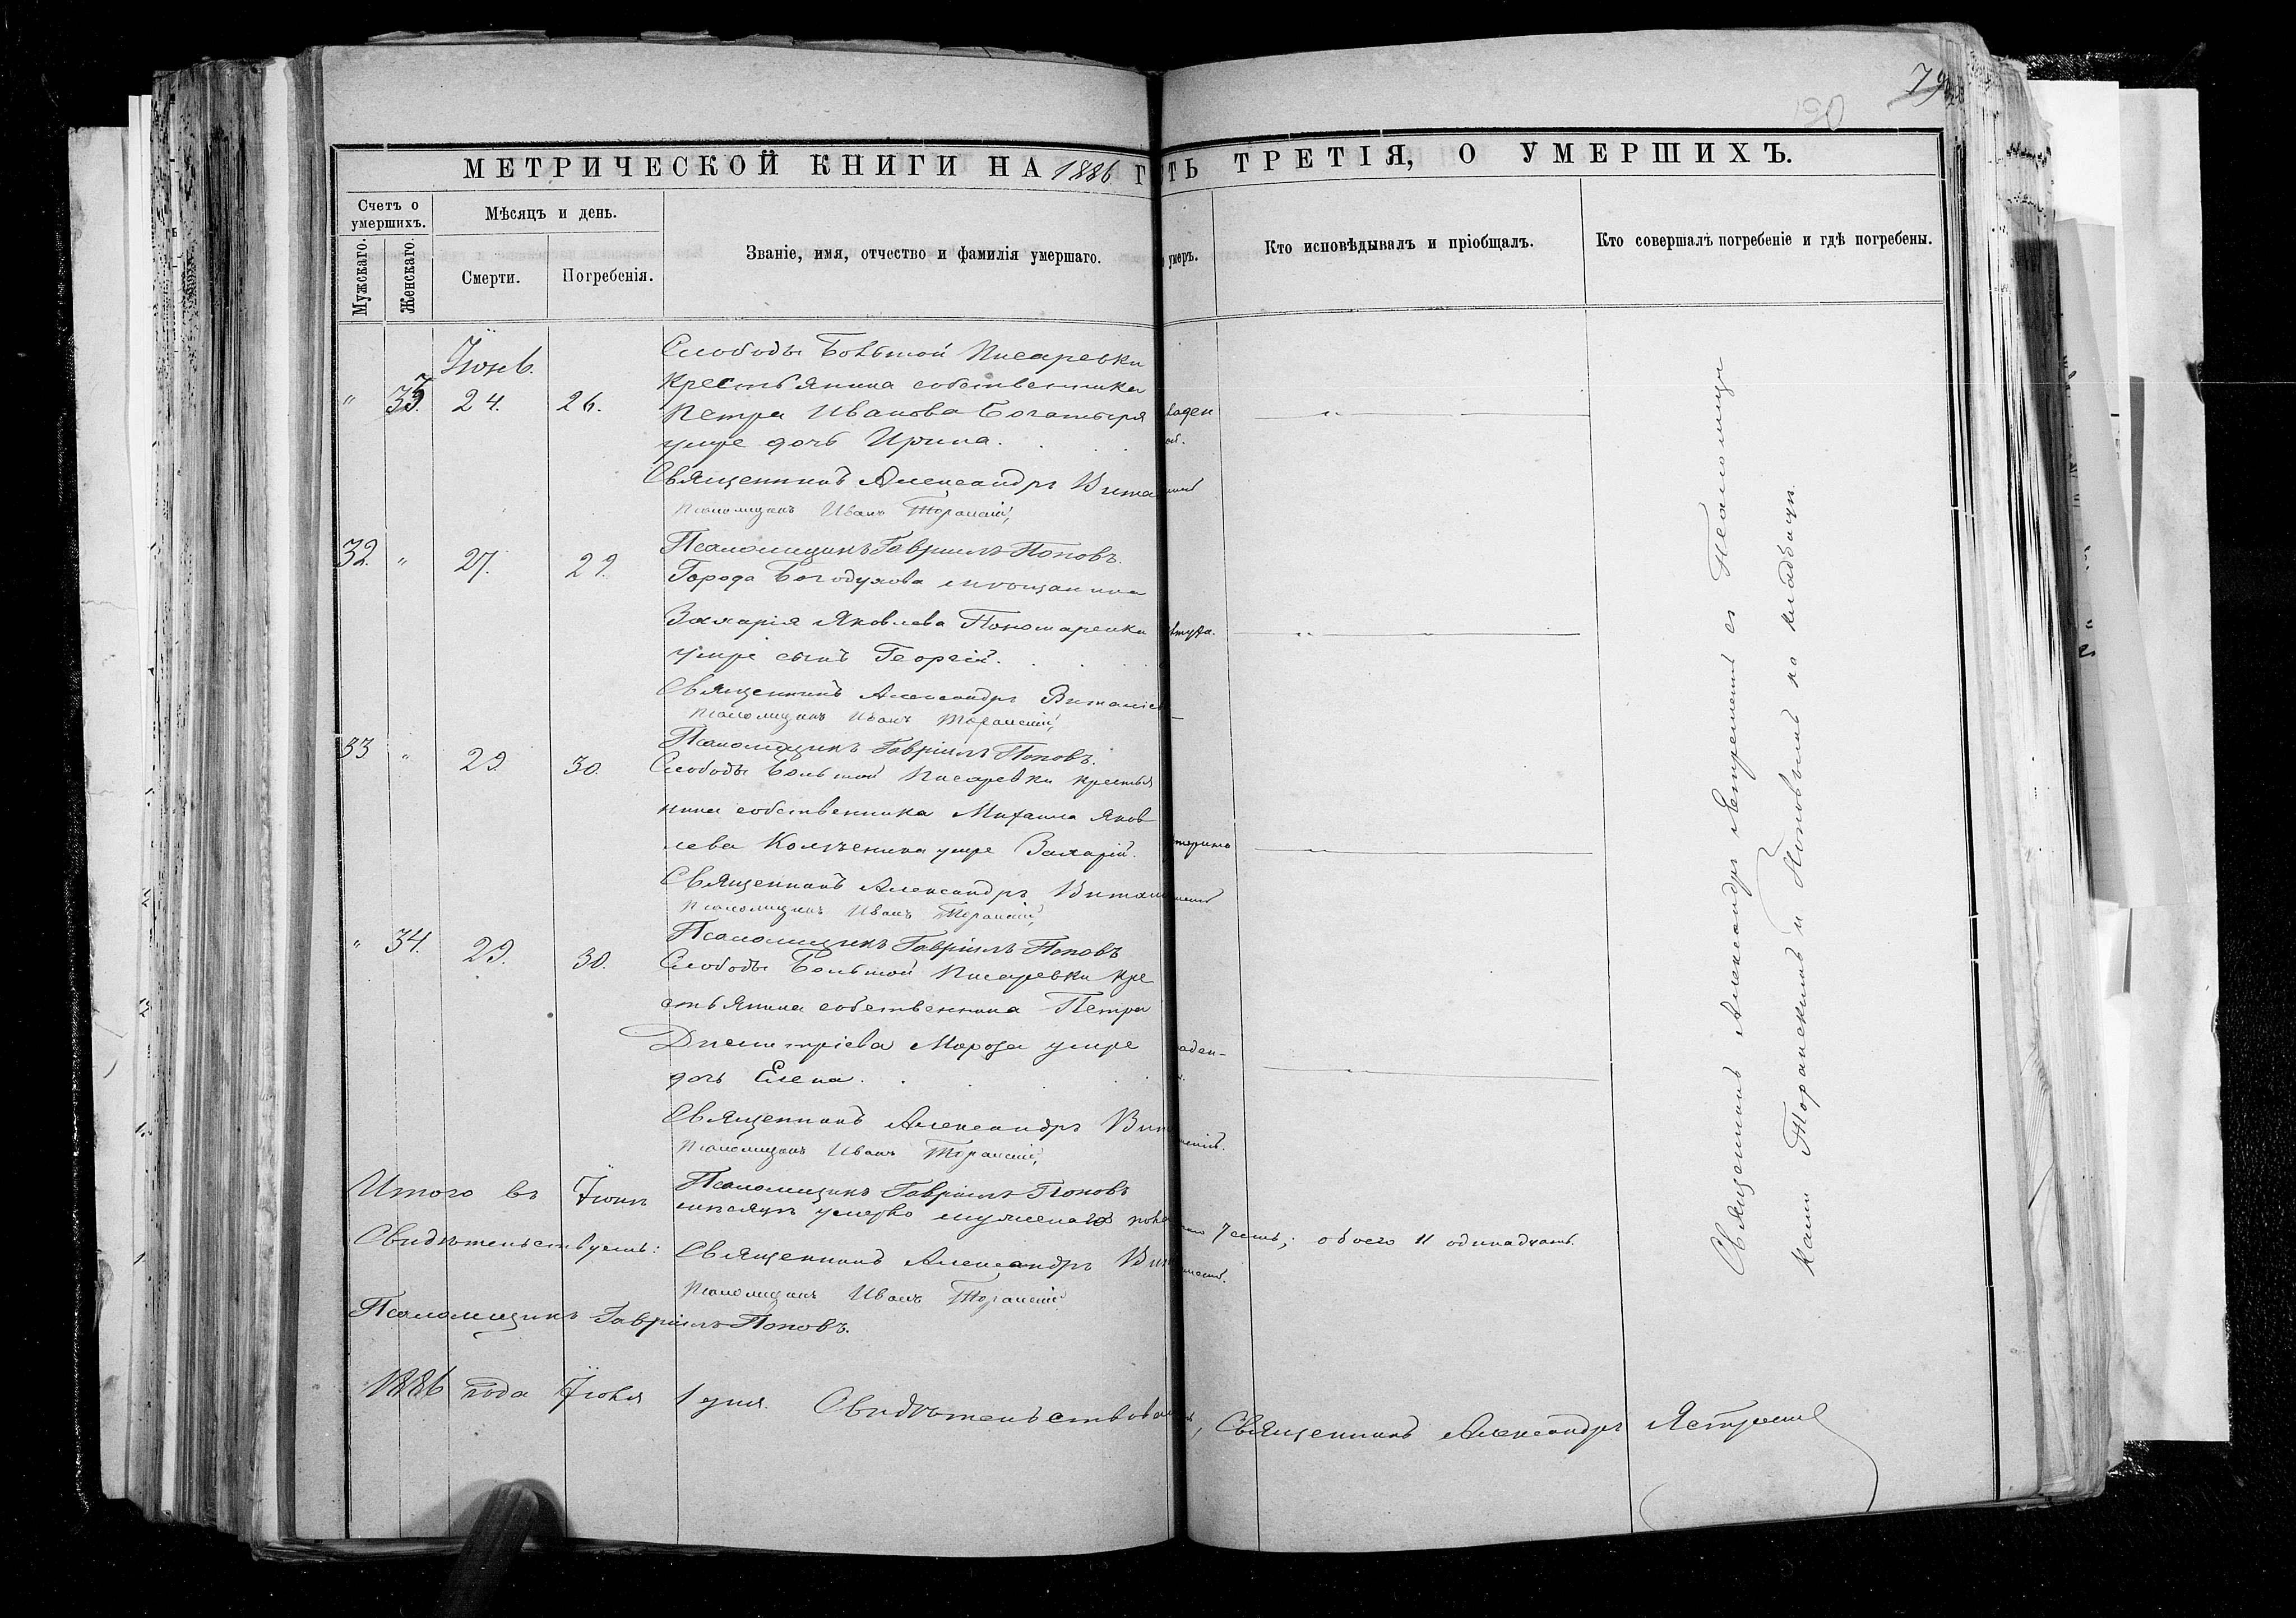 79
120
МЕТРИЧЕСКОЙ КНИГИ НА 1886 Г
ТЬ ТРЕТІЯ, О УМЕРШИХЪ.
Счетъ о умершихъ.
Мужскаго.
Женскаго.
Мѣсяцъ и день.
Смерти.
Погребенія.
Званіе, имя, отчество и фамилія умершаго.
умеръ.
Кто исповѣдывалъ и пріобщалъ.
Кто совершалъ погребеніе и гдѣ погребены.
Іюнь.
Слободы Большой Писаревки
крестьянина собственника
" 33. 24. 26. Петра Иванова Богатыря
умре дочь Ирина.
Священникъ Александръ
Псаломщикъ Иванъ Торанскій,
Псаломщикъ Гавріилъ Поповъ.
32. " 27. 29. Города Богодухова мѣщанина
Захарія Яковлева Пономаренка
умре сынъ Георгій.
Священникъ Александръ
Псаломщикъ Иванъ Торанскій,
Псаломщикъ Гавріилъ Поповъ.
33 " 29. 30. Слободы Большой Писаревки крестья
нина собственника Михаила Яков
лева умре Захарій.
Священникъ Александръ
Псаломщикъ Иванъ Торанскій,
Псаломщикъ Гавріилъ Поповъ
" 34. 29. 30. Слободы Большой Писаревки кре
стьянина собственника Петра
Димитріева Мороза умре
дочь Елена.
Священникъ Александръ
Псаломщикъ Иванъ Торанскій,
Псаломщикъ Гавріилъ Поповъ
Итого въ Іюнѣ мѣсяцѣ умерло мужескаго 7 семь; обоего 11 одинадцать.
Свидѣтельствуемъ: Священникъ Александръ
Псаломщикъ Иванъ Торанскій
Псаломщикъ Гавріилъ Поповъ.
1886 года Іюля 1 дня. Свидѣтельствовалъ, Священникъ Александръ
Священникъ Александръ съ Псаломщи
ками Торанскимъ и Поповымъ на кладбищѣ.